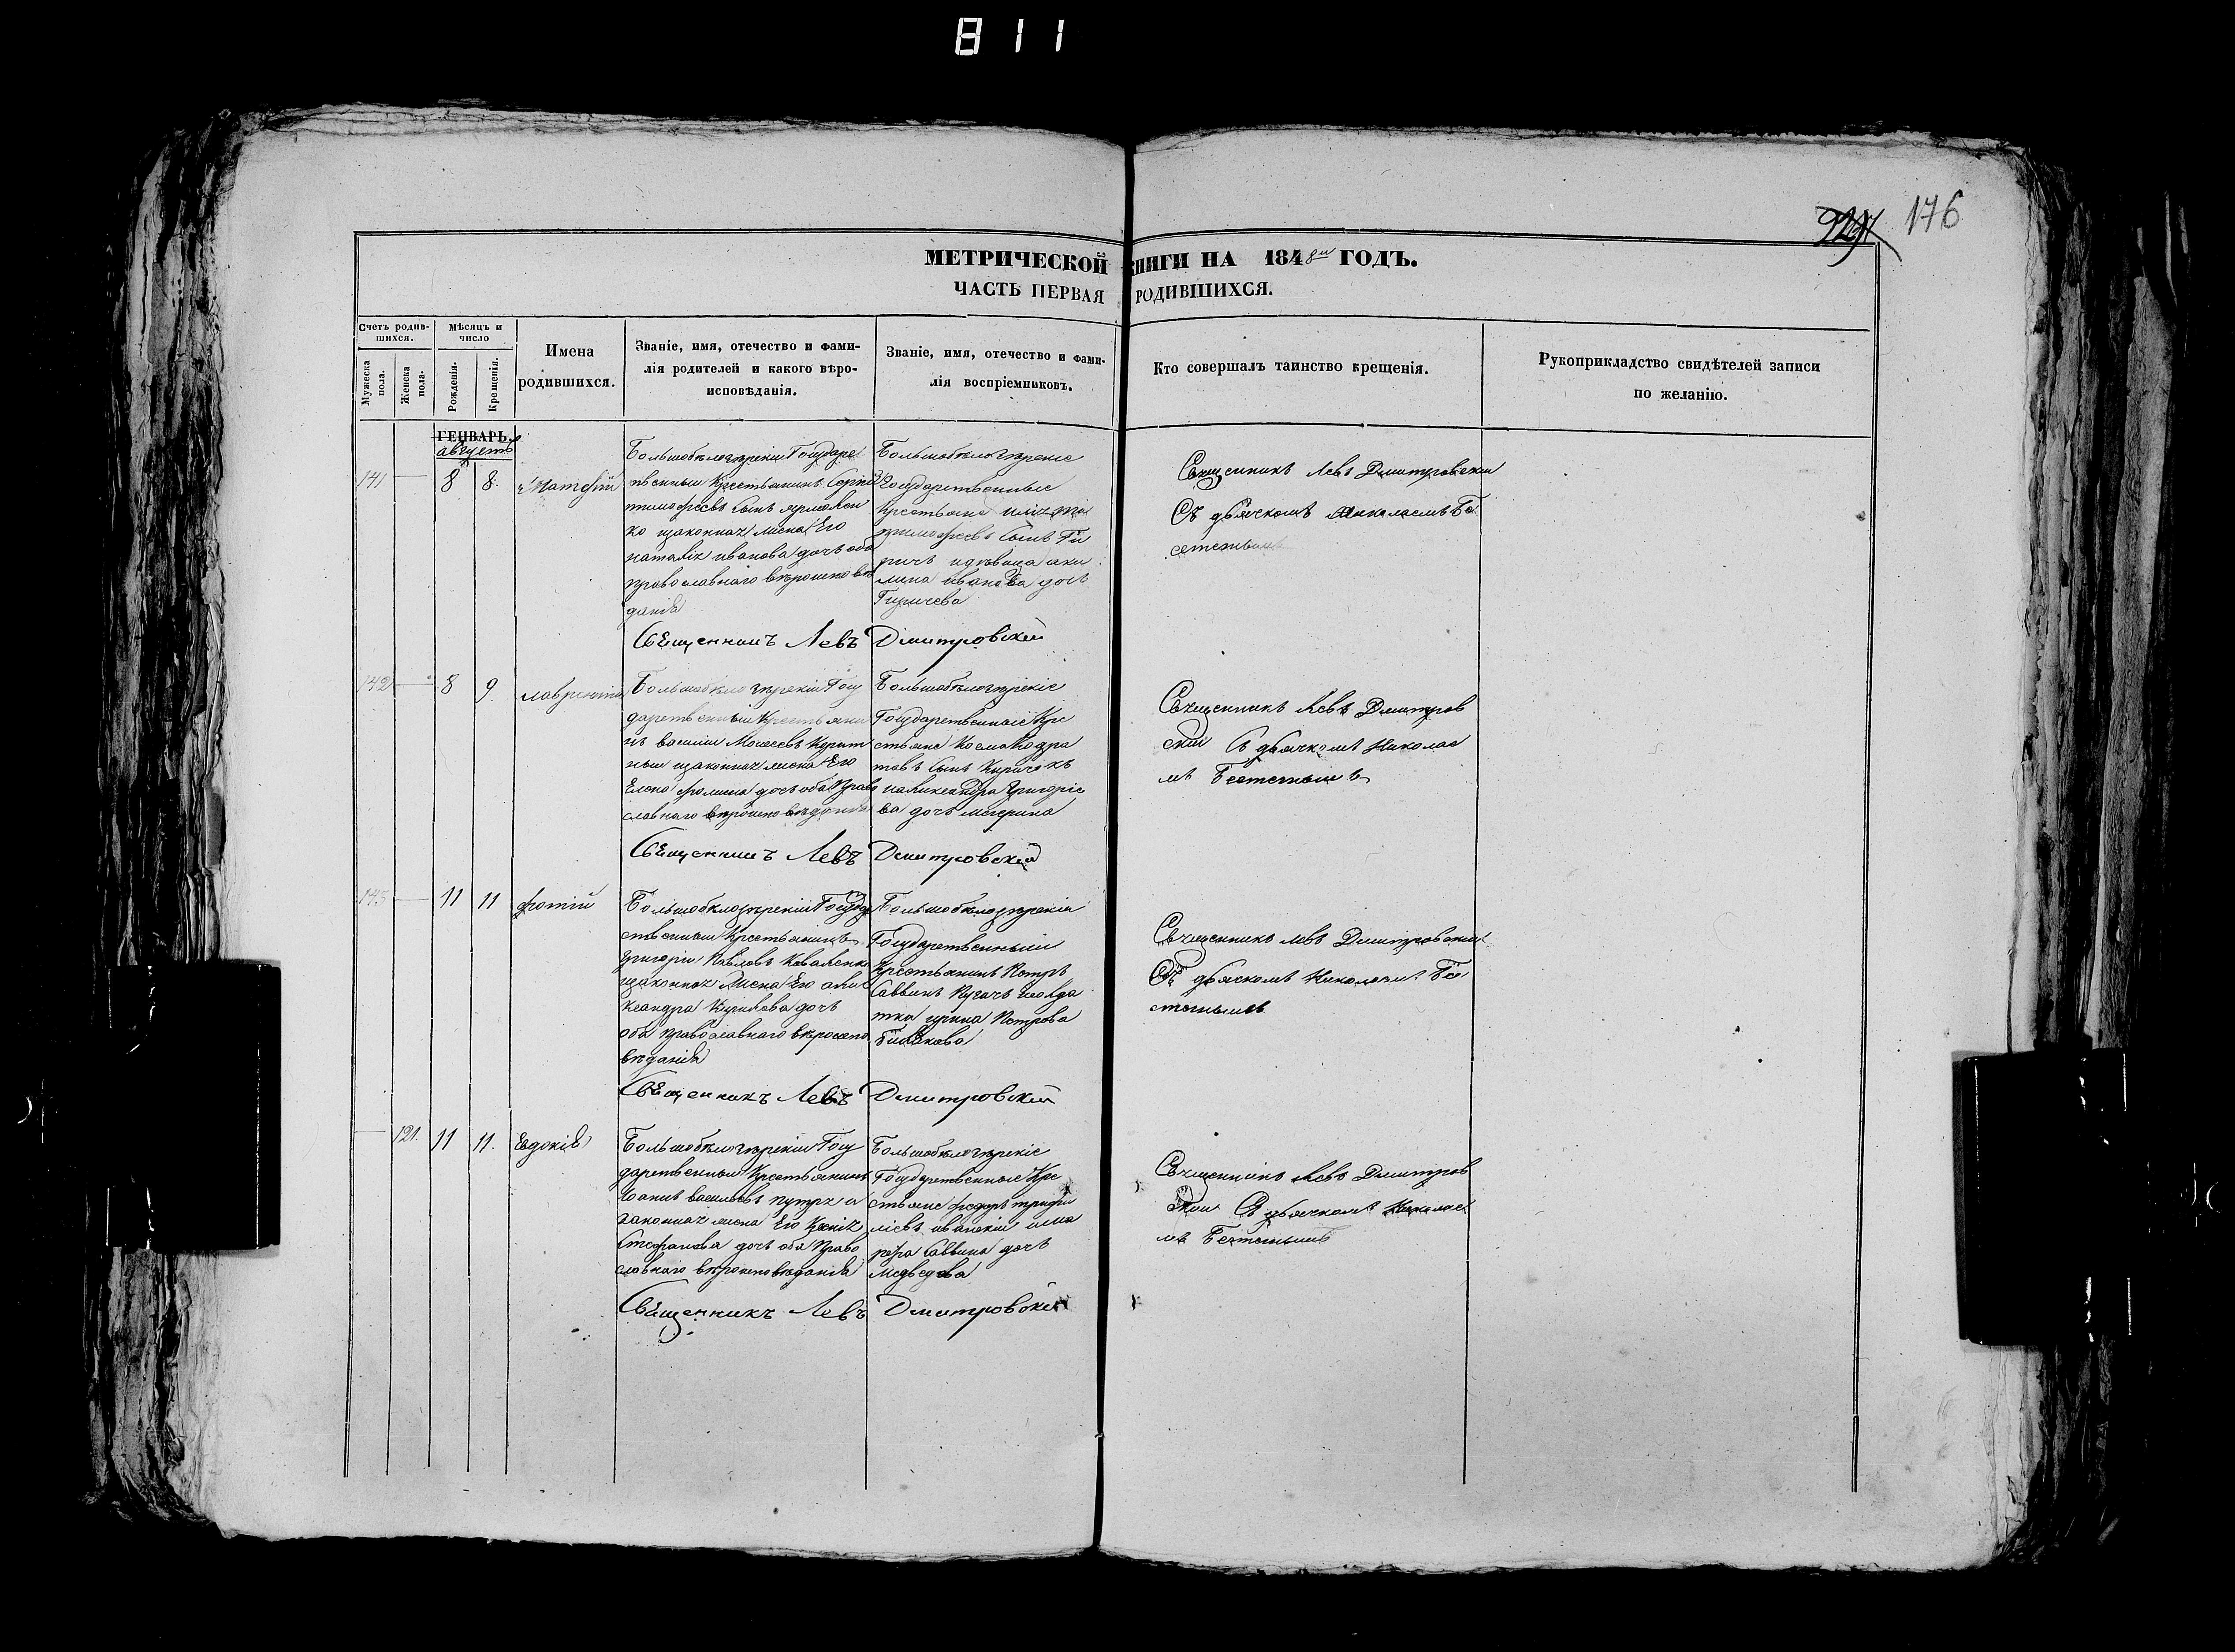 811
176
МЕТРИЧЕСКОЙ КНИГИ НА 1848й ГОДЪ.
ЧАСТЬ ПЕРВАЯ РОДИВШИХСЯ.
Счетъ родив-
шихся.
Мужеска пола.
Женска пола.
Мѣсяцъ и
число
Рожденія.
Крещенія.
Имена
родившихся.
Званіе, имя, отечество и фами-
лія родителей и какого вѣро-
исповѣданія.
Званіе, имя, отечество и фами-
лія воспріемниковъ.
Кто совершалъ таинство крещенія.
Рукоприкладство свидѣтелей записи
по желанію.
ГЕНВАРЬ.
августъ
141 — 8 8. Матфій
Большобѣлозѣрскій Государс
твенный Крестьянинъ Сергій
тимофеевъ Сынъ
законная жена Его
наталія иванова дочь оба
православнаго вѣроисповѣ
данія
Большобѣлозѣрскіе
Государственные
Крестьяне илія
тимофеевъ Сынъ Ги
ричъ идѣвица аки
лина иванова дочь
Гиричева
Священникъ Левъ Дмитровскій
Съ дьячкомъ николаемъ Бе
Священникъ Левъ Дмитровскій
142 — 8 9. лаврентій
Большобѣлозѣрскій Госу
дарственный Крестьяни
нъ василій Моисеевъ
законная жена Его
Елена фомина дочь оба Право
славнаго вѣроисповѣданія
Большобѣлозѣрскіе
Государственные Кре
стьяне Косма Кодра
товъ Сынъ Киричокъ
Григоріе
ва дочь
Священникъ Левъ Дмитров
скій Съ дьячкомъ Николае
мъ
Священникъ Левъ Дмитровскій
143 — 11 11 фотій
Большобѣлозѣрскій Государ
ственный Крестьянинъ
григорій Павловъ Коваленко
законная Жена Его алек
сандра Кирилова дочь
оба православнаго вѣроиспо
вѣданія
Большобѣлозѣрскій
Государственный
Крестьянинъ Петръ
Саввинъ Пугачъ исолда
тка ирина Петрова
Священникъ левъ Дмитровскій
Съ дьячкомъ Николаемъ Бе
Священникъ Левъ Дмитровскій
— 121. 11 11. Евдокія
Большобѣлозѣрскій Госу
дарственный Крестьянинъ
Іоаннъ васильевъ
законная жена Его Ксенія
Стефанова дочь оба Право
славнаго вѣроисповѣданія
Большобѣлозѣрскіе
Государственные Кре
стьяне федоръ трифи
ліевъ
Саввина дочь
медведева
Священникъ Левъ Дмитров
скій Съ дьячкомъ Николае
мъ
Священникъ Левъ Дмитровскій